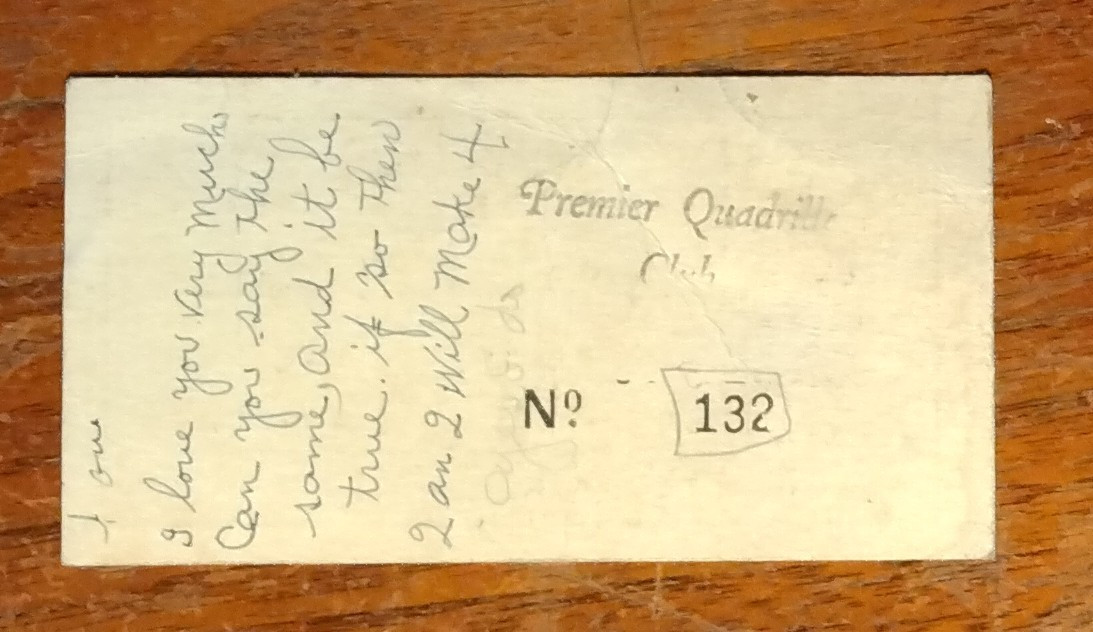 I love you very Much
Can you say the
same, and it be
true. if so then
2 an 2 will Make 4
Premier Quadrille
Club
No 132